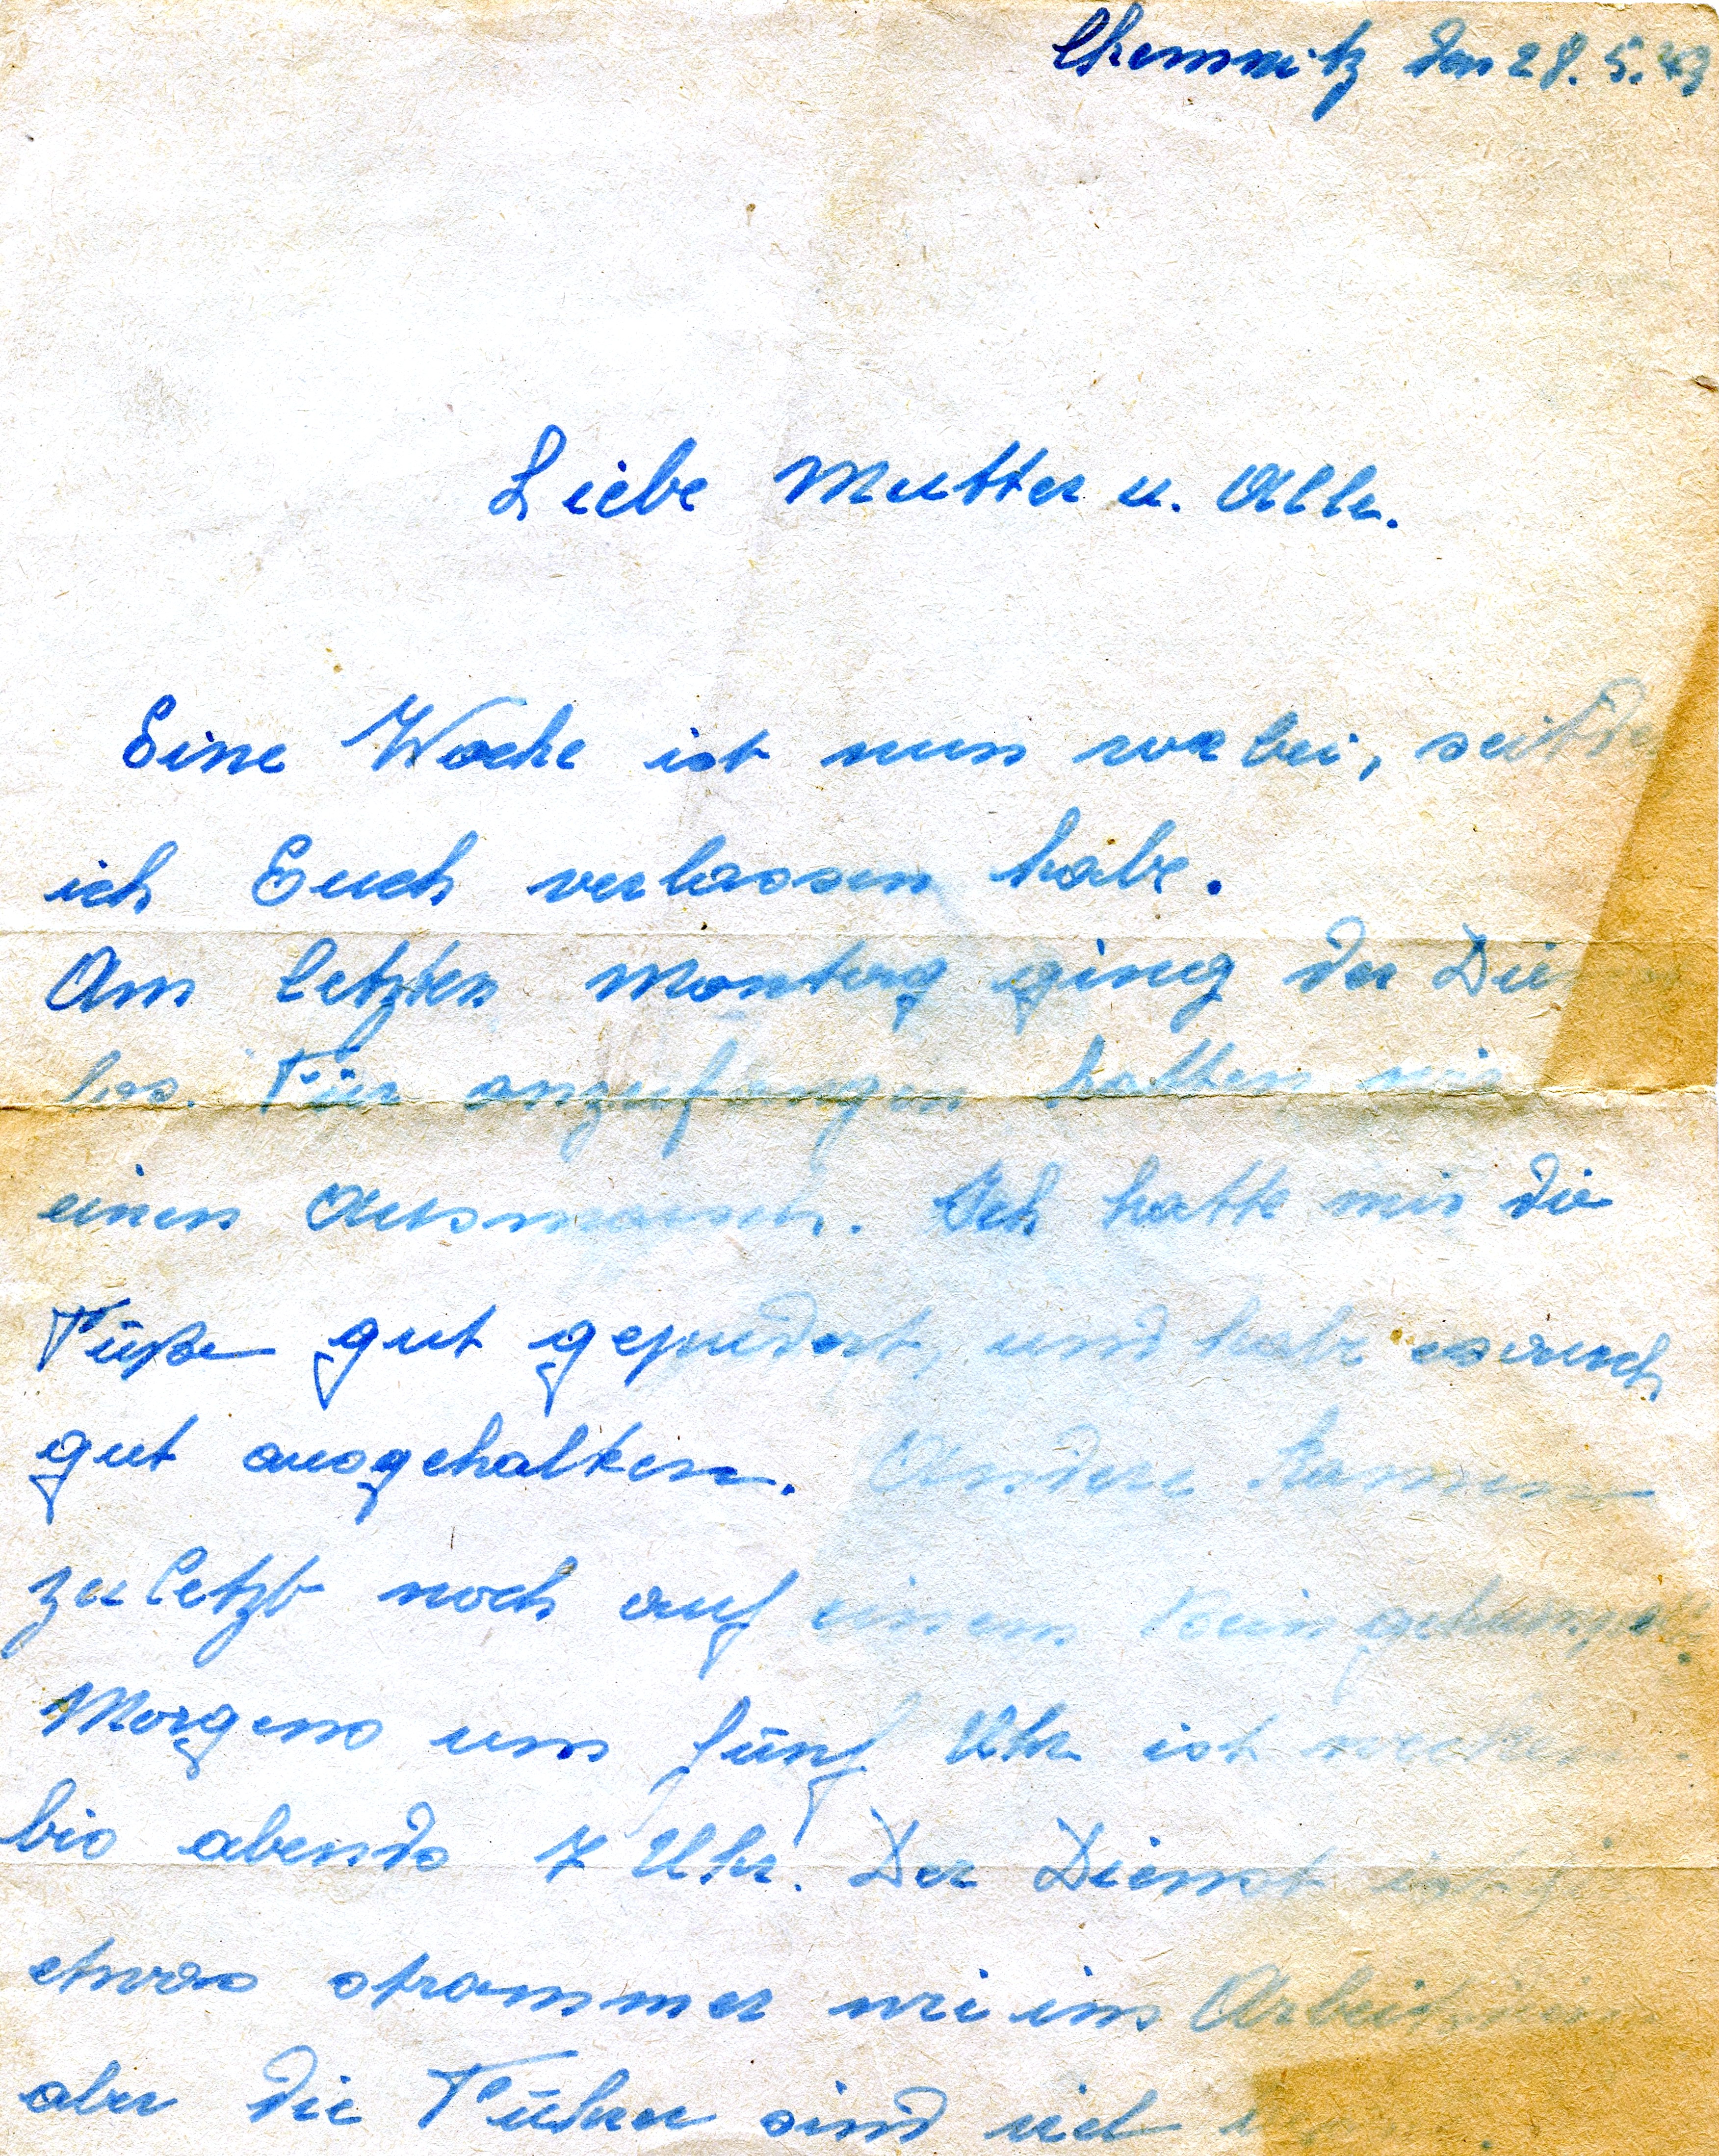 Chemnitz den 28. 5. 43
Liebe Mutter u. Alle.
Eine Woche ist nun vorbei, seitdem
ich Euch verlassen habe.
Am letzten Montag ging der
los. Für anzufangen hatten wir
einen Ausmarsch. Ich hatte mir die
Füße gut gepudert, und habe es auch
gut ausgehalten. Andere kamen
zuletzt noch auf einem Bein gehumpelt.
Morgens um fünf Uhr ist wecken
bis abends 7 Uhr. Der Dienst ist
etwas strammer wie im
aber die Führer sind viel